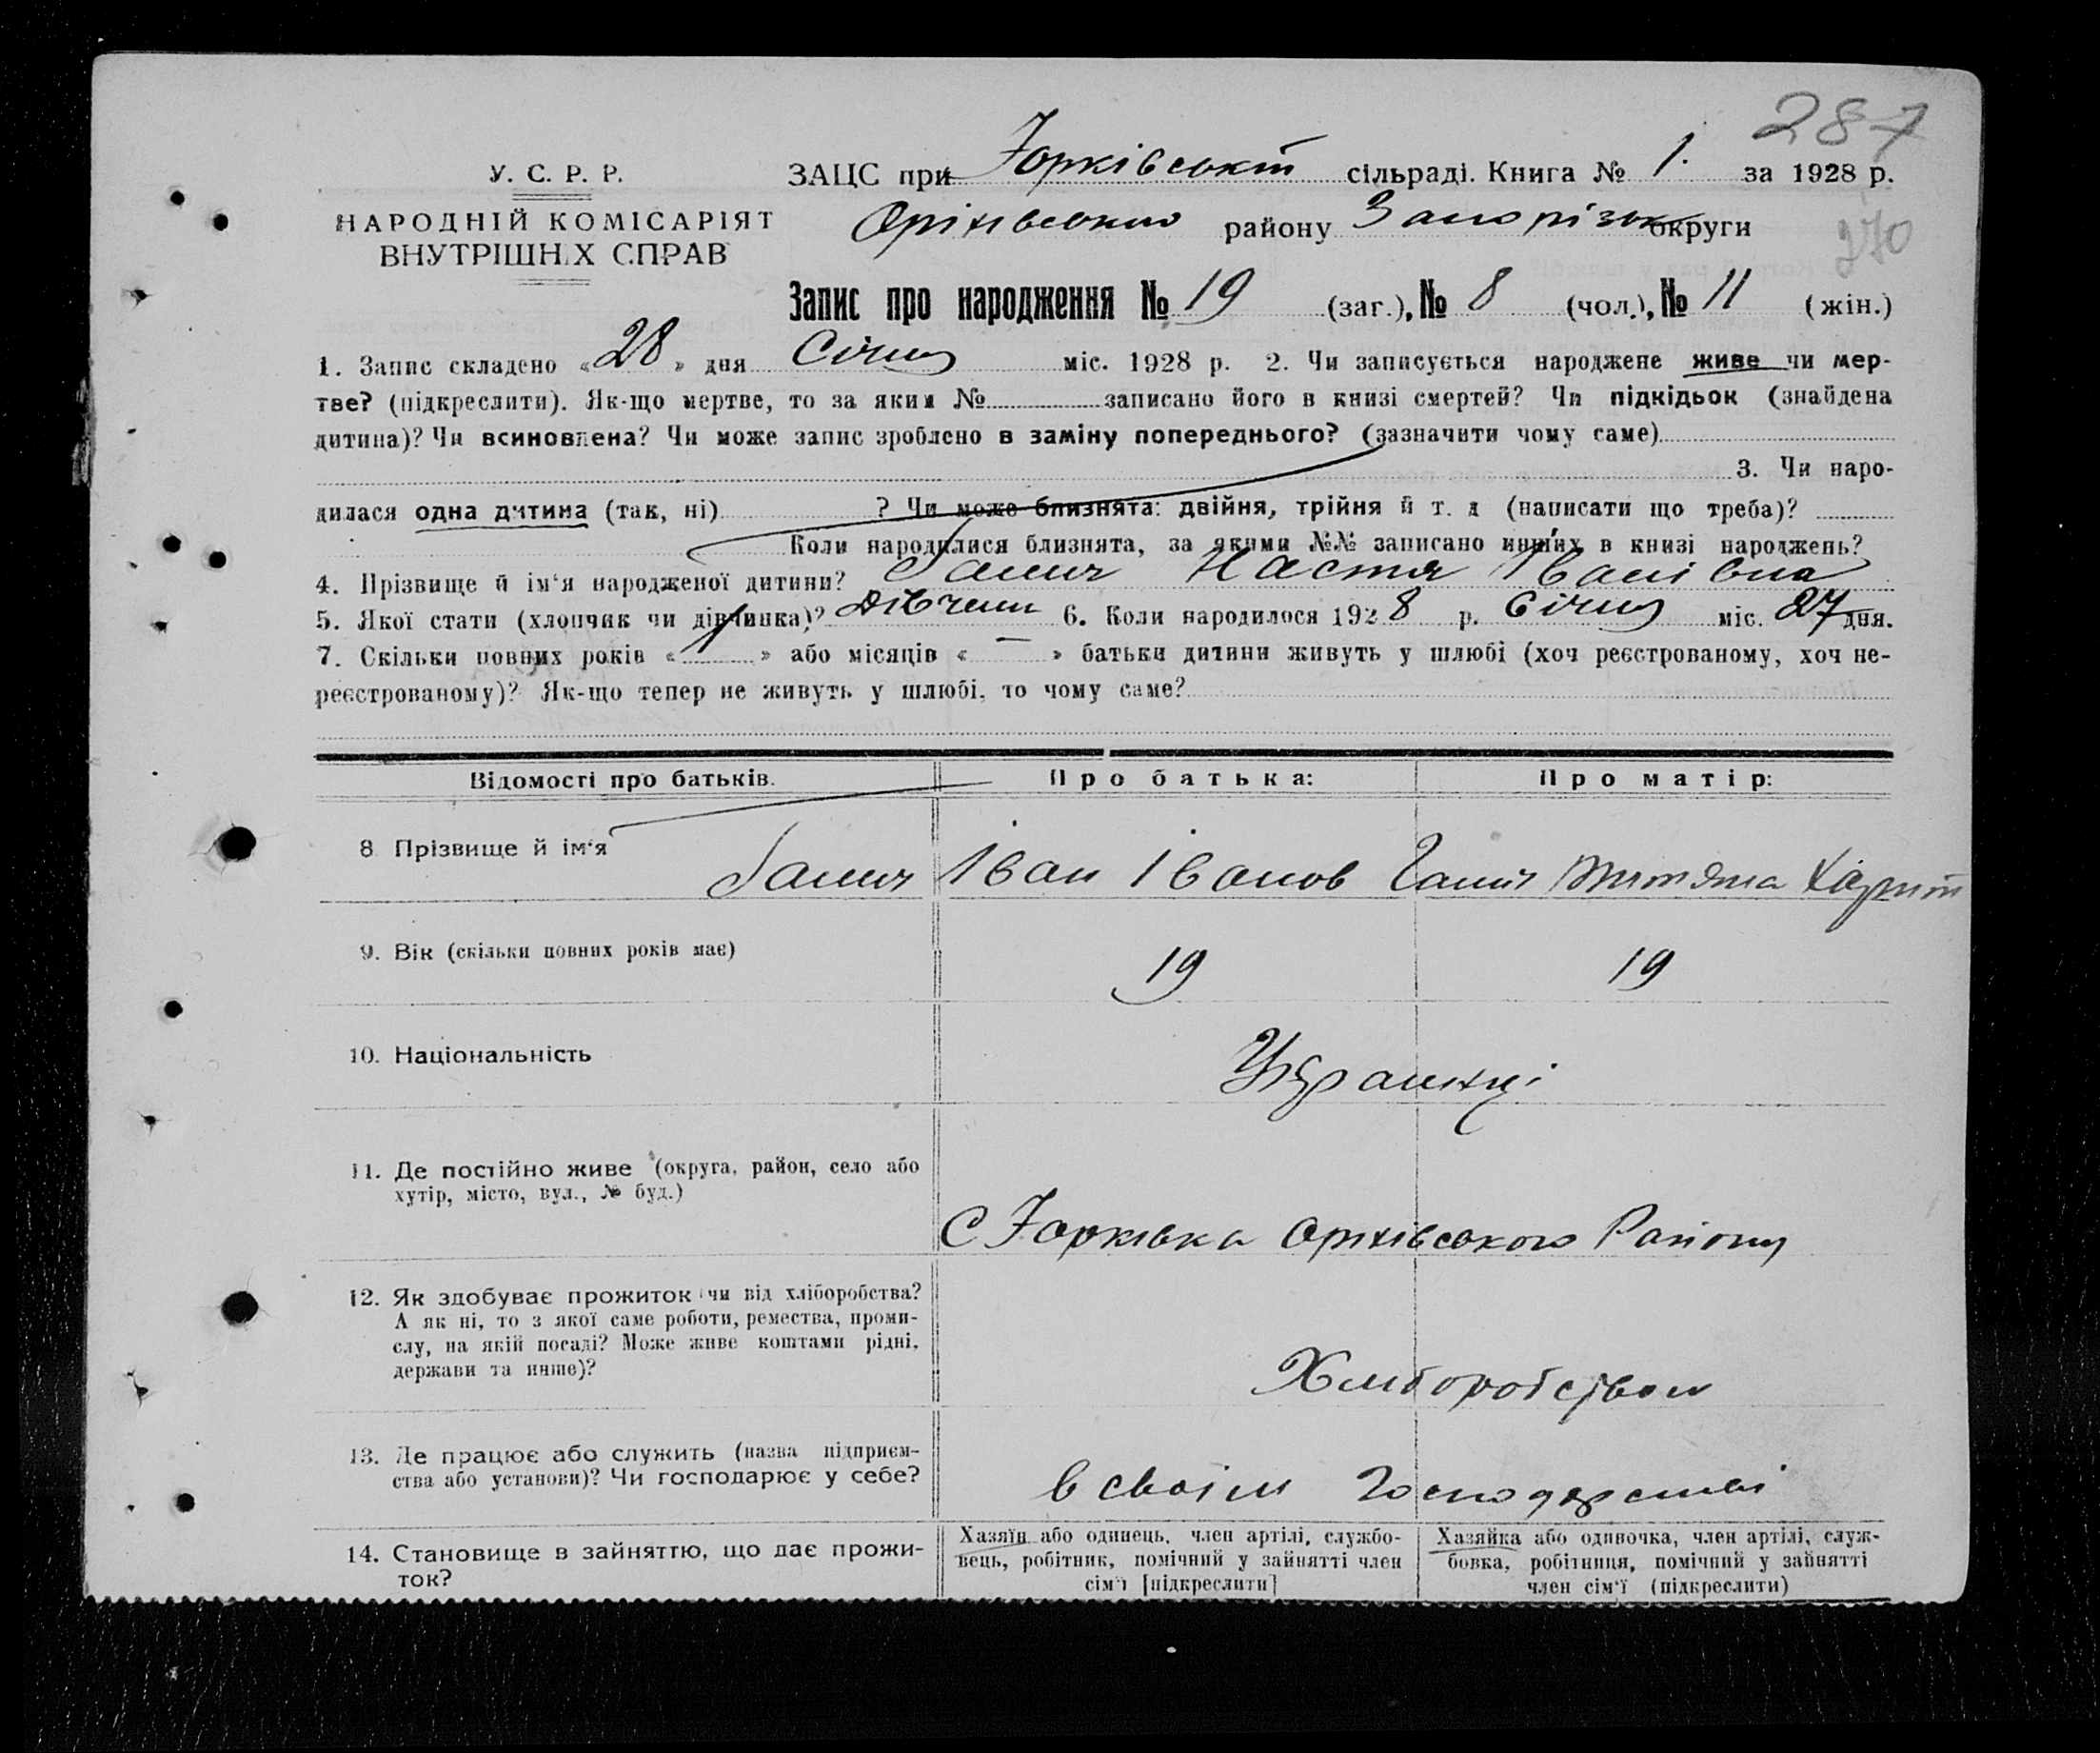 287
У. С. Р. Р.
НАРОДНІЙ КОМІСАРІЯТ
ВНУТРІШНІХ СПРАВ
ЗАЦС при Юрківській сільраді. Книга № 1. за 1928 р.
Оріхівського району Запорізьк округи
270
Запис про народження № 19 (заг.), № 8 (чол.), № 11 (жін.)
1. Запис складено «28» дня Січня міс. 1928 р. 2. Чи записується народжене живе чи мер-
тве? (підкреслити). Як-що мертве, то за яким № записано його в книзі смертей? Чи підкідьок (знайдена
дитина)? Чи всиновлена? Чи може запис зроблено в заміну попереднього? (зазначити чому саме)
3. Чи наро-
дилася одна дитина (так, ні) ? Чи може близнята: двійня, трійня й т. д (написати що треба)?
Коли народилися близнята, за якими №№ записано инших в книзі народжень?
4. Прізвище й ім‘я народженої дитини? Галич Настя Іванівна
5. Якої стати (хлопчик чи дівчинка)? Дівчени 6. Коли народилося 1928 р. Січня міс. 27 дня.
7. Скільки повних років « 1 » або місяців « — » батьки дитини живуть у шлюбі (хоч реєстрованому, хоч не-
реєстрованому)? Як-що тепер не живуть у шлюбі, то чому саме?
Відомості про батьків. Про батька: Про матір:
8 Прізвище й ім‘я Галич Іван Іванов Галич
9. Вік (скільки повних років має) 19 19
10. Національність Українці
11. Де постійно живе (округа, район, село або
хутір, місто, вул., № буд.)
С Юрківка Оріхівського Району
12. Як здобуває прожиток чи від хліборобства?
А як ні, то з якої саме роботи, ремества, проми-
слу, на якій посаді? Може живе коштами рідні,
держави та инше)?
Хліборобством
13. Де працює або служить (назва підприєм-
ства або установи)? Чи господарює у себе?
в своїм господарстві
14. Становище в зайняттю, що дає прожи-
ток?
Хазяїн або одинець, член артілі, службо-
вець, робітник, помічний у зайнятті член
сім‘ї [підкреслити]
Хазяйка або одиночка, член артілі, служ-
бовка, робітниця, помічний у зайнятті
член сім‘ї (підкреслити)